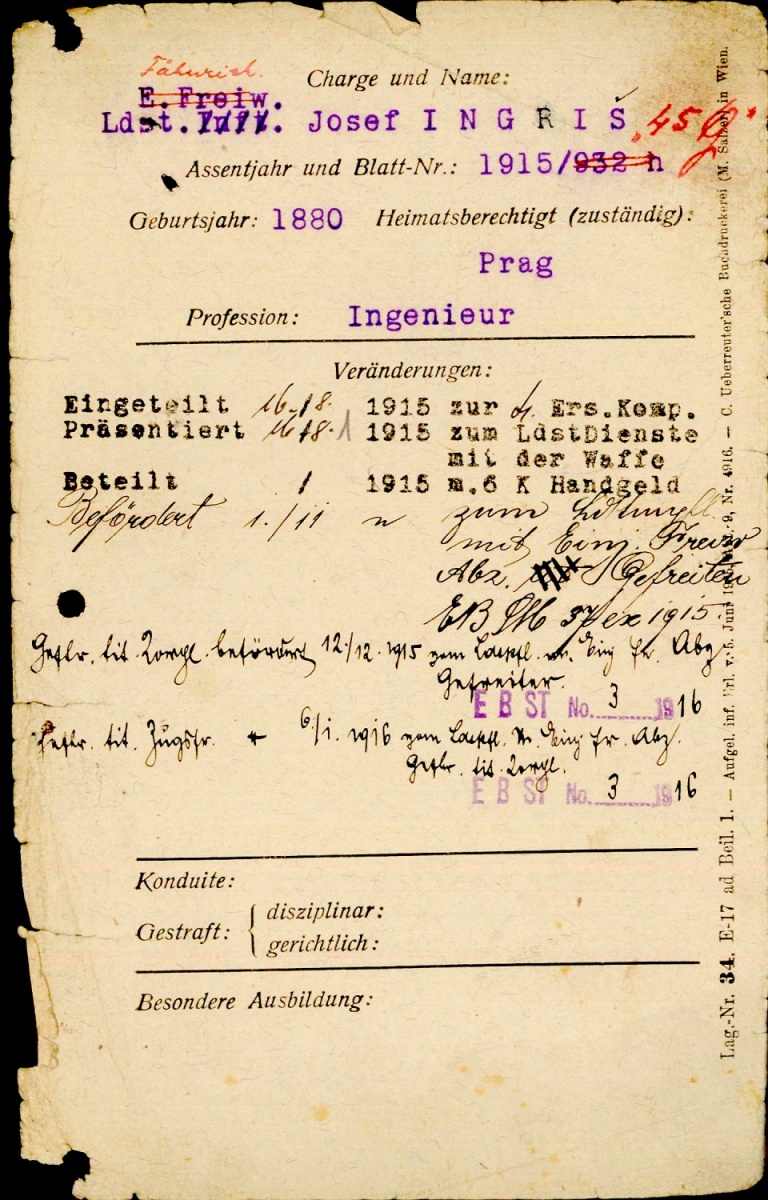 Fähnrich.
Charge und Name:
E. Freiw.
Ldst. Josef INGRIŠ 45
Assentjahr und Blatt-Nr.: 1915/932 h
Geburtsjahr: 1880 Heimatsberechtigt (zuständig):
Prag
Profession: Ingenieur
Veränderungen:
Eingeteilt 16./8. 1915 zur Ers.Komp.
Präsentiert 16/8. 1915 zum LdstDienste
mit der Waffe
Beteilt / 1915 m.6 K Handgeld
Befördert 1./11 zum
mit Einj. Freiw
Abz. Gefreiten
1915.
Geflr. tit. befördert 12./12. 1915 zum Abz
Gefreiter.
EBST No. 3 1916
Geflr. tit. Zugsfr. 6./1. 1916 zum Abz.
Geflr. tit.
EBST No. 3 1916
Konduite:
Gestraft: { disziplinar:
gerichtlich:
Besondere Ausbildung:
Lag.-Nr. 34. E-17 ad Beil. 1. — Aufgel. inf. Nr. 4916. — C. Ueberreuter'sche Buchdruckerei (M. Salzer) in Wien.